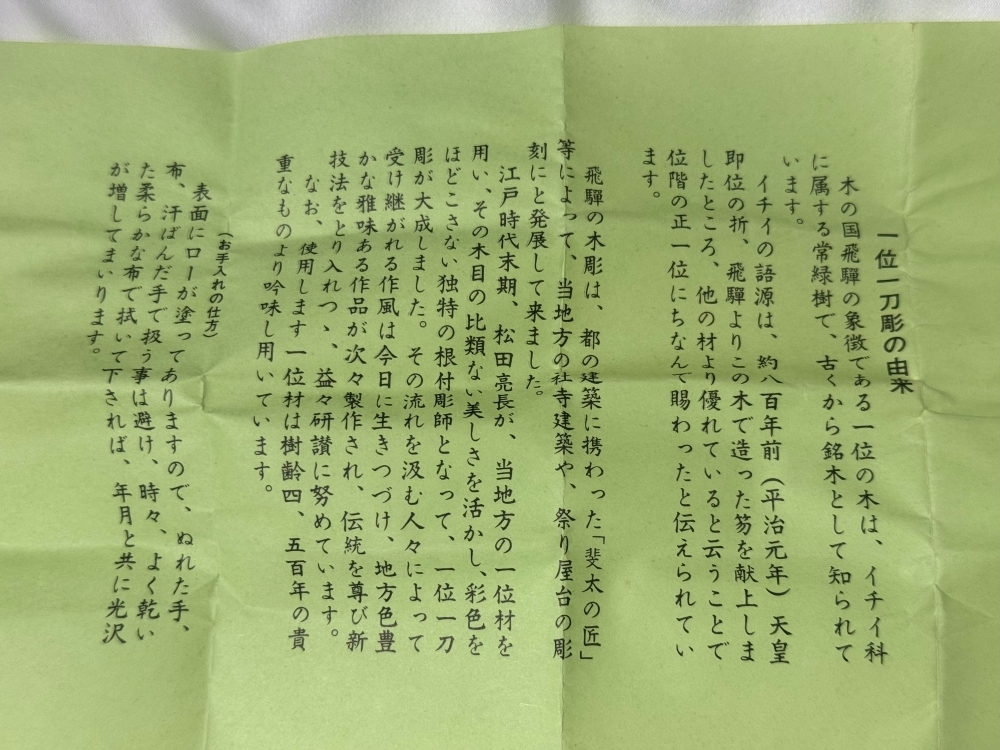 一位一刀彫の由来
木の国飛騨の象徴である一位の木は、イチイ科
に属する常緑樹で、古くから銘木として知られて
います。
イチイの語源は、約八百年前（平治元年）天皇
即位の折、飛騨よりこの木で造った笏を献上しま
したところ、他の材より優れていると云うことで
位階の正一位にちなんで賜わったと伝えられてい
ます。
飛騨の木彫は、都の建築に携わった「斐太の匠」
等によって、当地方の社寺建築や、祭り屋台の彫
刻にと発展して来ました。
江戸時代末期、松田亮長が、当地方の一位材を
用い、その木目の比類ない美しさを活かし、彩色を
ほどこさない独特の根付彫師となって、一位一刀
彫が大成しました。その流れを汲む人々によって
受け継がれる作風は今日に生きつづけ、地方色豊
かな雅味ある作品が次々製作され、伝統を尊び新
技法をとり入れつゝ、益々研讃に努めています。
なお、使用します一位材は樹齢四、五百年の貴
重なものより吟味し用いています。
（お手入れの仕方）
表面にローが塗ってありますので、ぬれた手、
布、汗ばんだ手で扱う事は避け、時々、よく乾い
た柔らかな布で拭いて下されば、年月と共に光沢
が増してまいります。